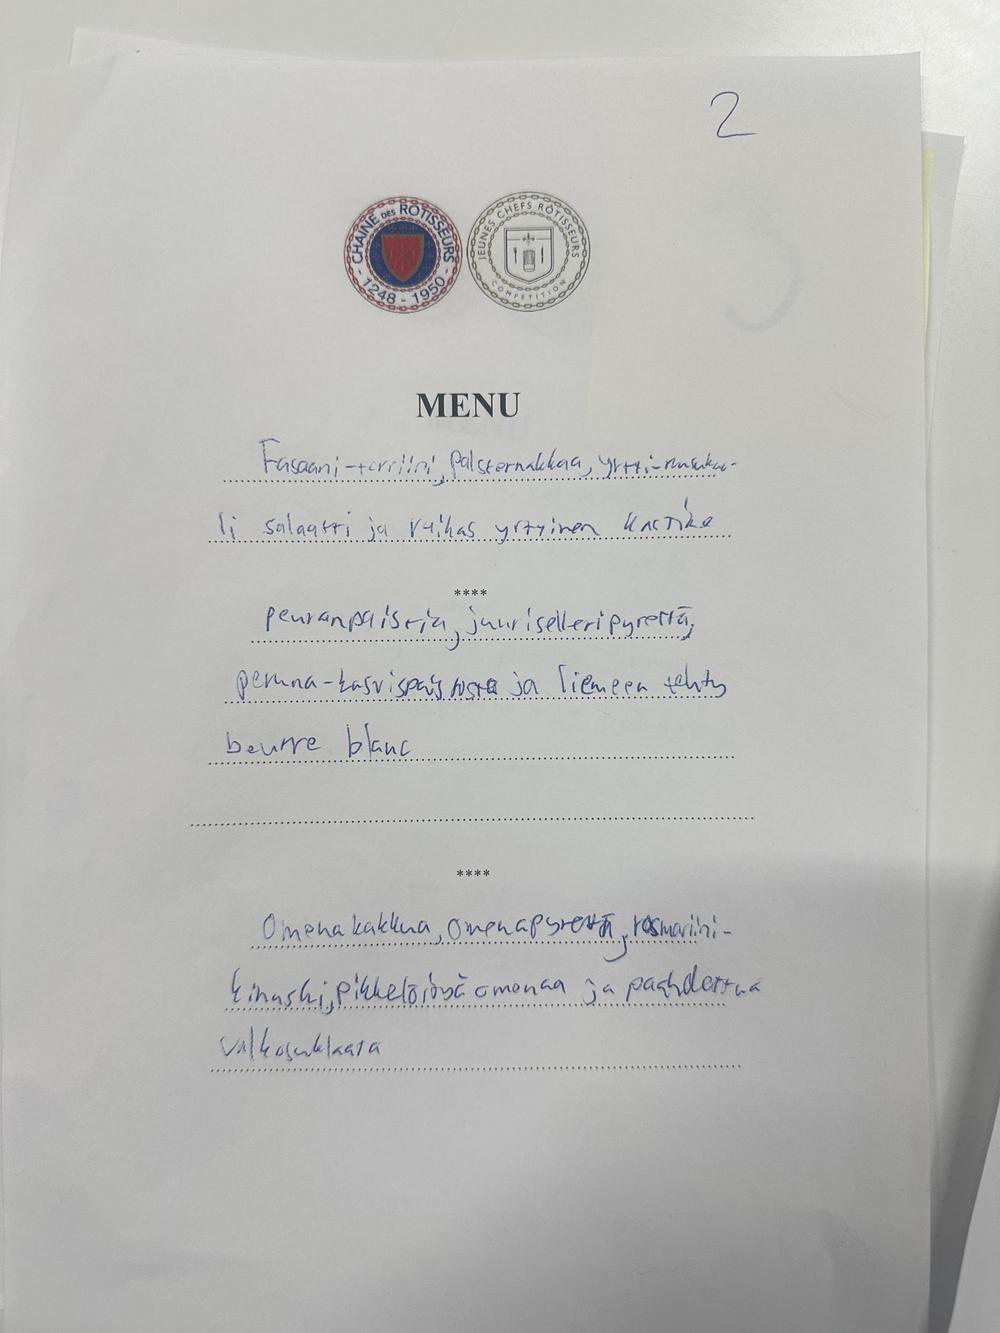 2
CHAINE DES ROTISSEURS
1248 - 1950
JEUNES CHEFS RÔTISSEURS
COMPETITION
MENU
Fasaani-terriini, palsternakkaa, yrtti-ruusukaa-
li salaatti ja raikas yrttinen kastike
****
peuranpaistia, juuriselleripyrettä,
peruna-kasvispaistosta ja liemeen tehty
beurre blanc
****
Omenakakkua, omenapyrettä, rosmariini-
kinuski, pikkelöityä omenaa ja paahdettua
valkosuklaata